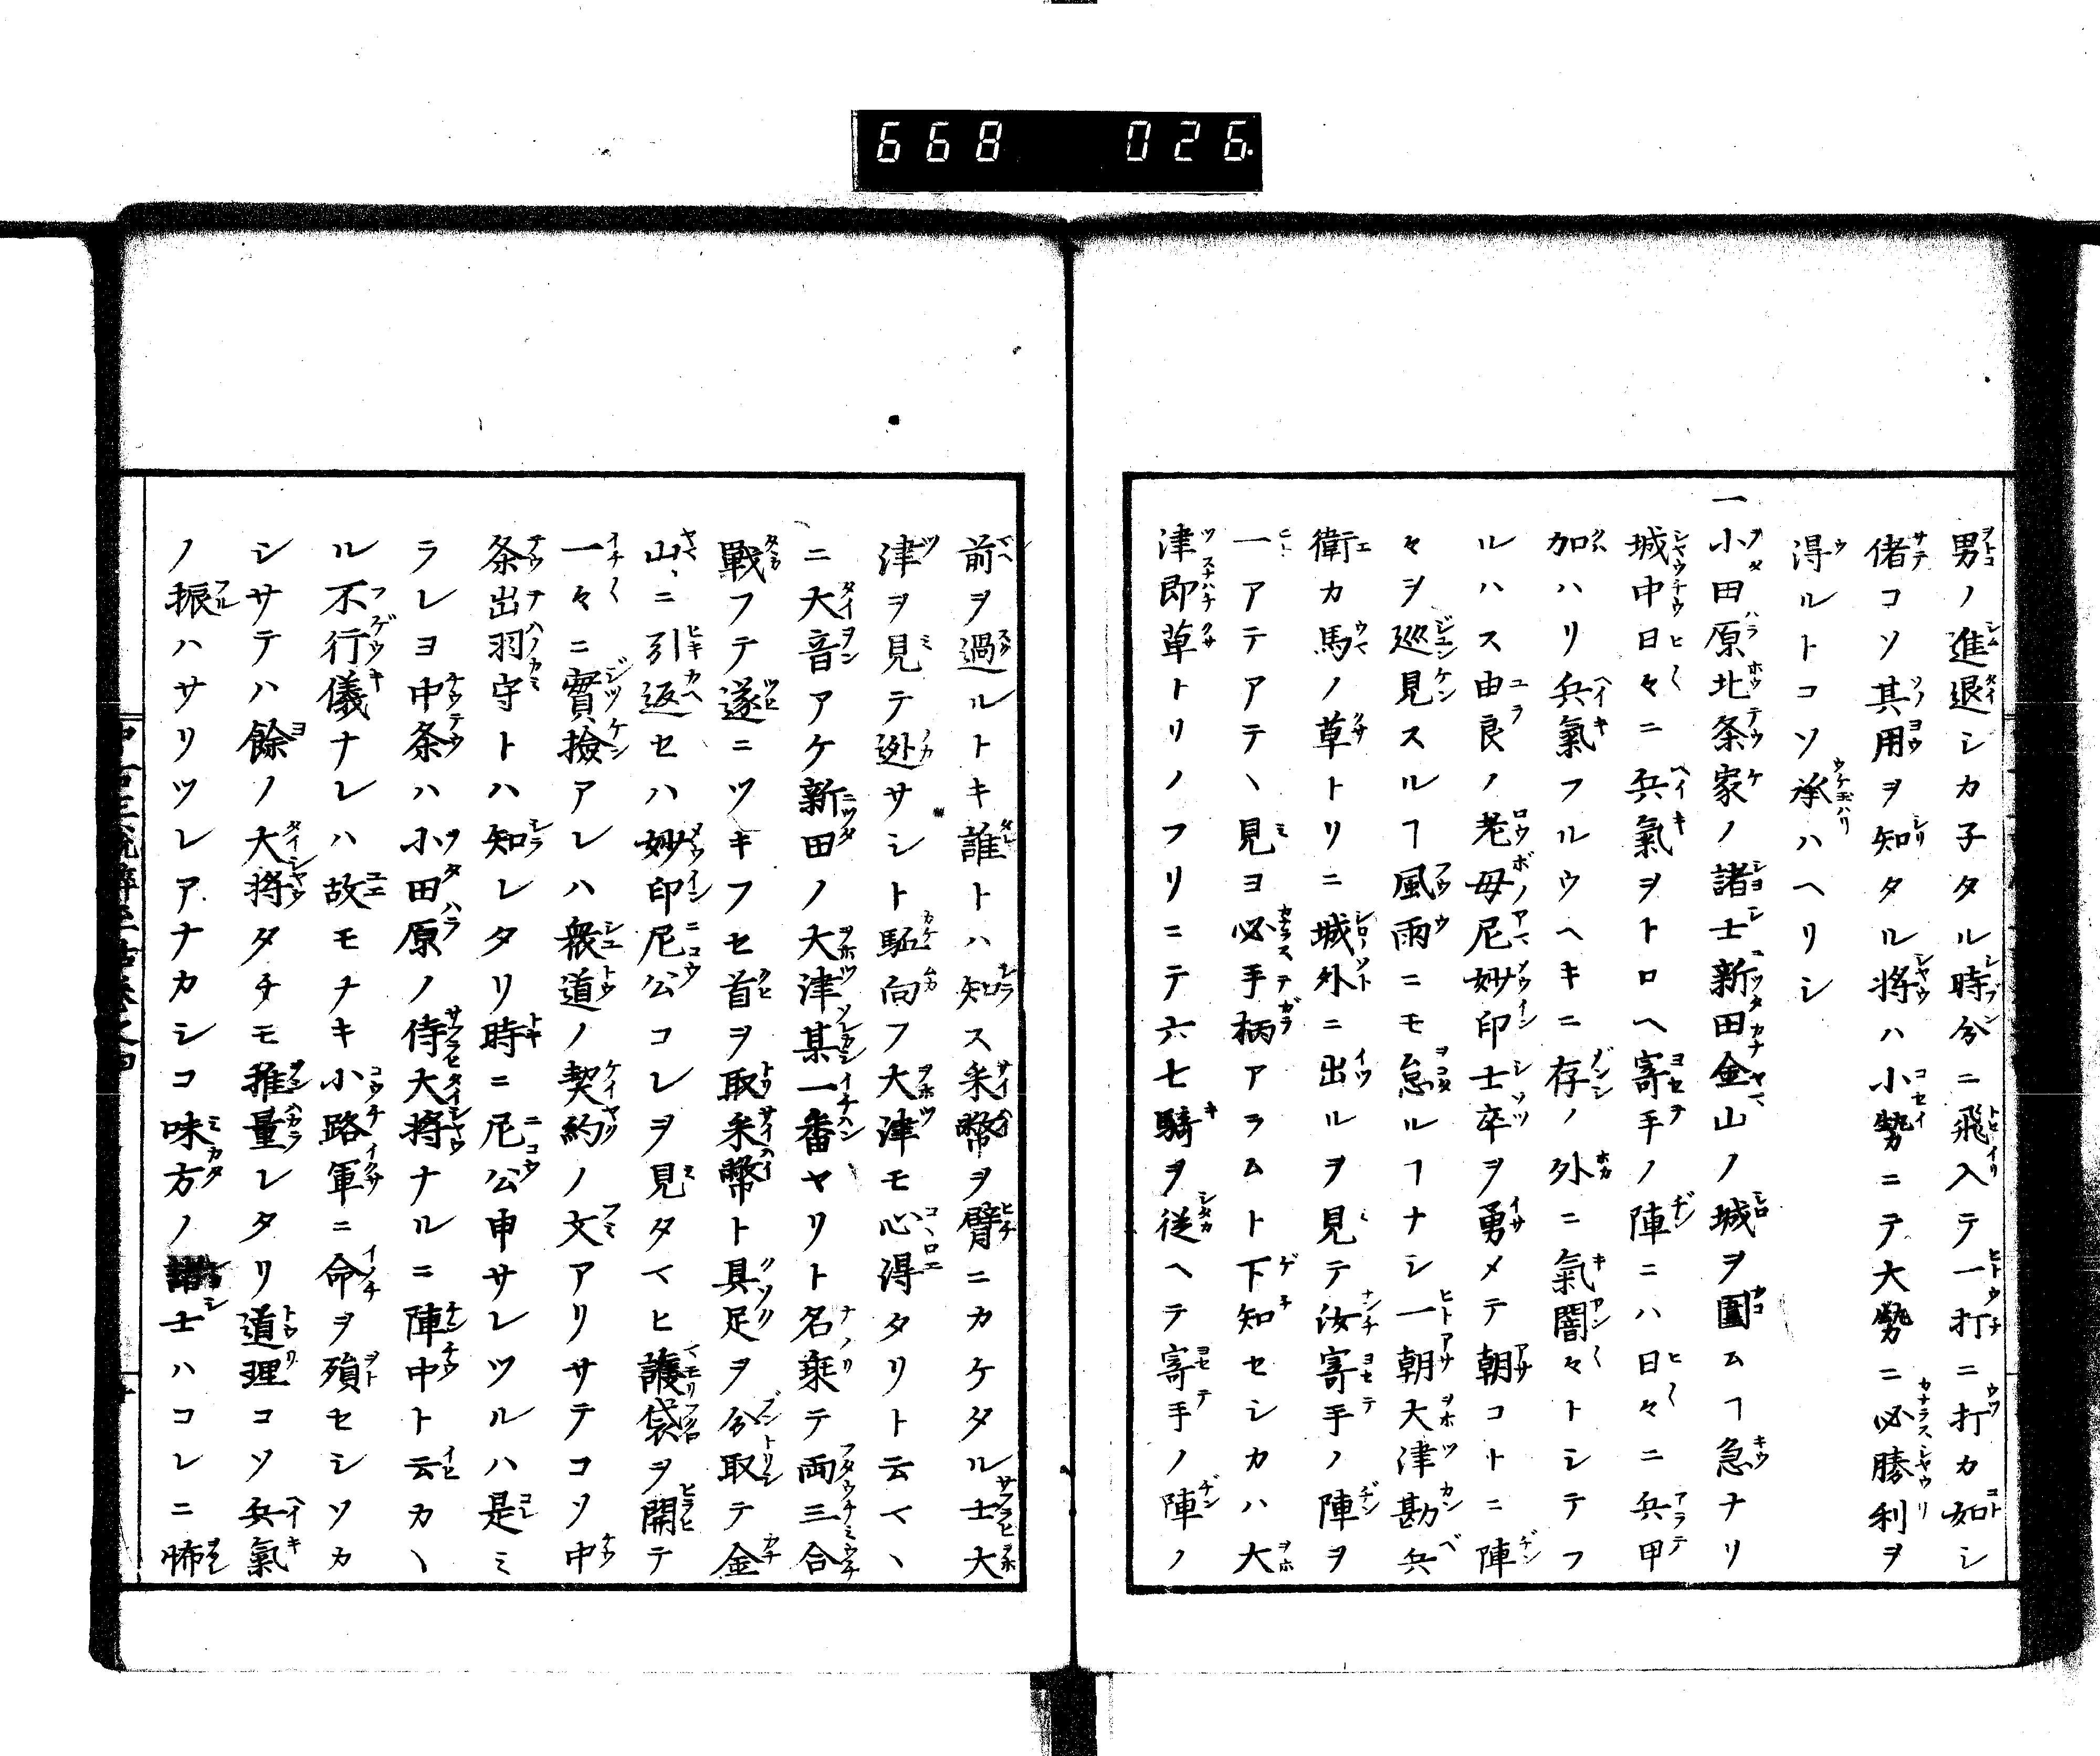 668 026
男ノ進退シカ子タル時分ニ飛入テ一打ニ打カ如シ
偖コソ其用ヲ知タル將ハ小勢ニテ大勢ニ必勝利ヲ
得ルトコソ承ハヘリシ
一小田原北条家ノ諸士新田金山ノ城ヲ圍ムヿ急ナリ
城中日々ニ兵氣ヲトロヘ寄手ノ陣ニハ日々ニ兵甲
加ハリ兵氣フルウヘキニ存ノ外ニ氣闇々トシテフ
ルハス由良ノ老母尼妙印士卒ヲ勇メテ朝コトニ陣
々ヲ巡見スルヿ風雨ニモ怠ルヿナシ一朝大津勘兵
衛カ馬ノ草トリニ城外ニ出ルヲ見テ汝寄手ノ陣ヲ
一アテアテヽ見ヨ必手柄アラムト下知セシカハ大
津即草トリノフリニテ六七騎ヲ従ヘテ寄手ノ陣ノ
前ヲ過ルトキ誰トハ知ス釆幣ヲ臂ニカケタル士大
津ヲ見テ迯サシト駈向フ大津モ心得タリト云マヽ
ニ大音アケ新田ノ大津某一番ヤリト名乗テ両三合
戰フテ遂ニツキフセ首ヲ取釆幣ト具足ヲ分取テ金
山ニ引返セハ妙印尼公コレヲ見タマヒ護袋ヲ開テ
一々ニ實撿アレハ衆道ノ契約ノ文アリサテコソ中
条出羽守トハ知レタリ時ニ尼公申サレツルハ是ミ
ラレヨ中条ハ小田原ノ侍大將ナルニ陣中ト云カヽ
ル不行儀ナレハ故モナキ小路軍ニ命ヲ殞セシソカ
シサテハ餘ノ大將タチモ推量レタリ道理コソ兵氣
ノ振ハサリツレアナカシコ味方ノ諸士ハコレニ怖